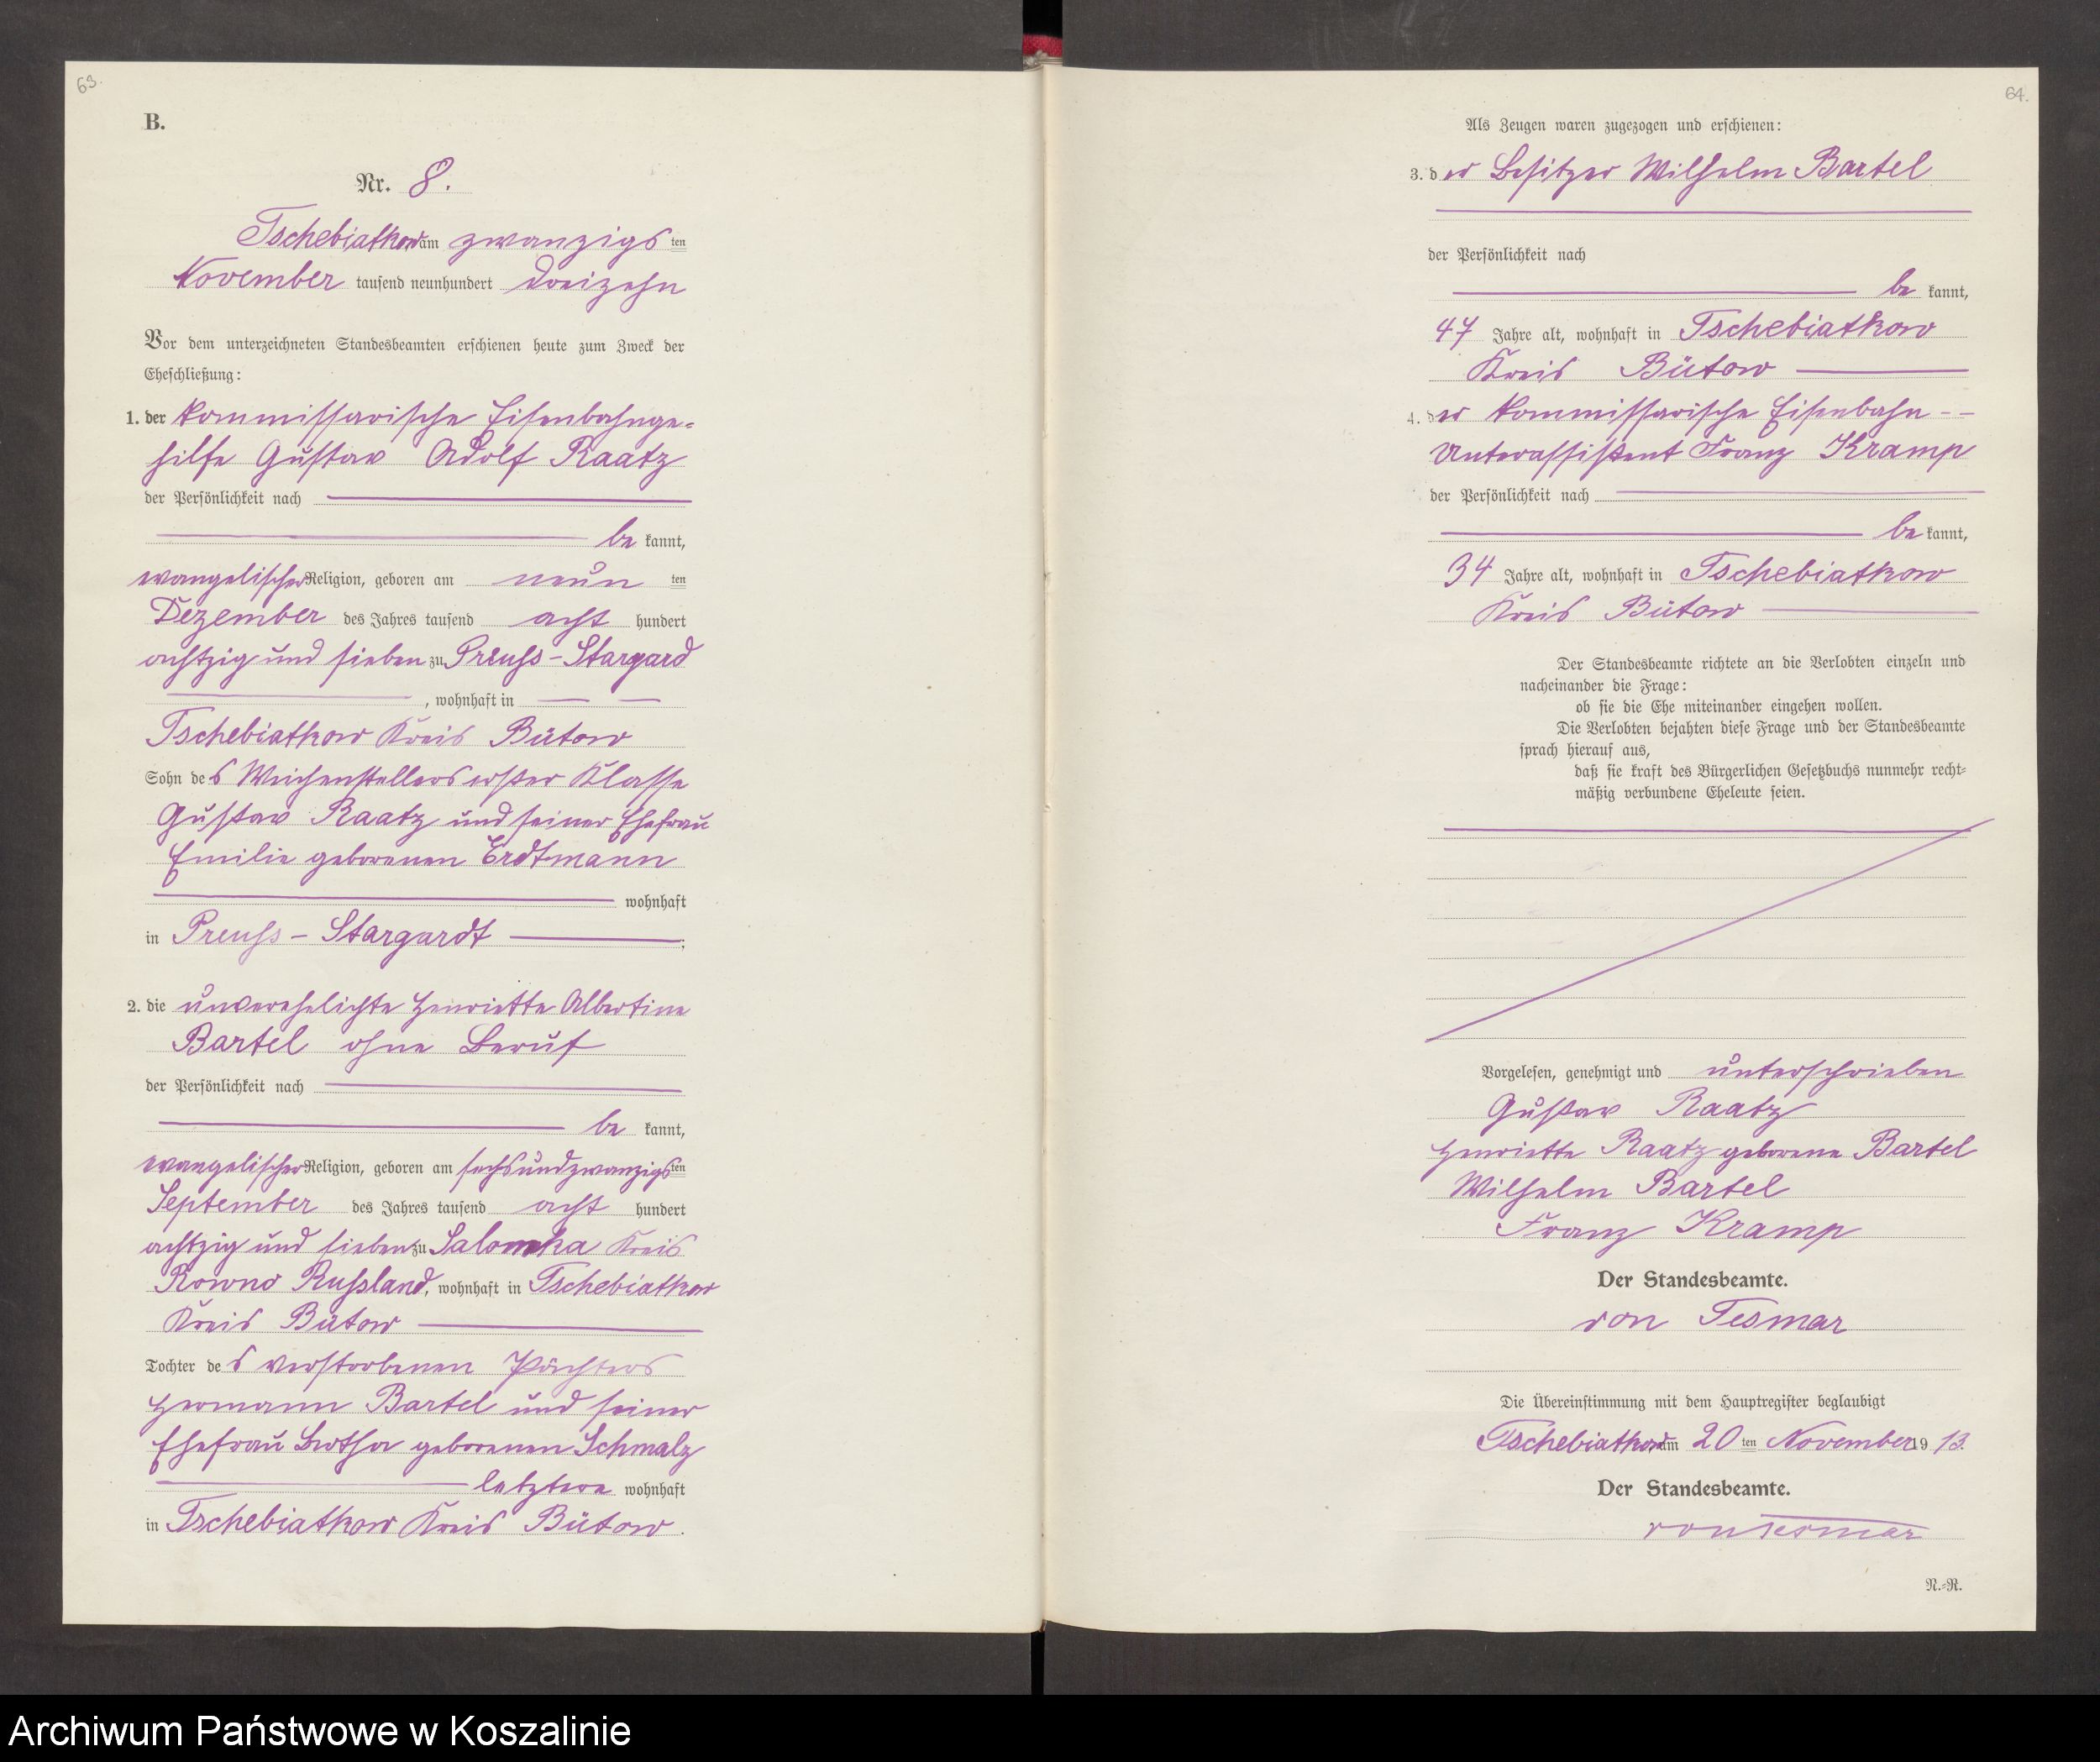 63.
B.
Nr. 8.
Tschebiatkow am zwanzigs ten
November tausend neunhundert dreizehn
Vor dem unterzeichneten Standesbeamten erschienen heute zum Zweck der
Eheschließung:
1. der kommissarische Eisenbahnge-
hilfe Gustav Adolf Raatz
der Persönlichkeit nach
be kannt,
evangelischer Religion, geboren am neun ten
Dezember des Jahres tausend acht hundert
achtzig und sieben zu Preuss-Stargard
, wohnhaft in
Tschebiatkow Kreis Bütow
Sohn des Weichenstellers erster Klasse
Gustav Raatz und seiner Ehefrau
Emilie geborenen Erdtmann
wohnhaft
in Preuss-Stargardt ;
2. die unverehelichte Henriette Albertine
Bartel ohne Beruf
der Persönlichkeit nach
be kannt,
evangelischer Religion, geboren am sechsundzwanzigs ten
September des Jahres tausend acht hundert
achtzig und sieben zu Salomka Kreis
Rowno Russland, wohnhaft in Tschebiatkow
Kreis Bütow
Tochter des verstorbenen Pächters
Hermann Bartel und seiner
Ehefrau Bertha geborenen Schmalz
letztere wohnhaft
in Tschebiatkow Kreis Bütow.
64.
Als Zeugen waren zugezogen und erschienen:
3. der Besitzer Wilhelm Bartel
der Persönlichkeit nach
be kannt,
47 Jahre alt, wohnhaft in Tschebiatkow
Kreis Bütow
4. der kommissarische Eisenbahn--
Unterassistent Franz Kramp
der Persönlichkeit nach
be kannt,
34 Jahre alt, wohnhaft in Tschebiatkow
Kreis Bütow
Der Standesbeamte richtete an die Verlobten einzeln und
nacheinander die Frage:
ob sie die Ehe miteinander eingehen wollen.
Die Verlobten bejahten diese Frage und der Standesbeamte
sprach hierauf aus,
daß sie kraft des Bürgerlichen Gesetzbuchs nunmehr recht-
mäßig verbundene Eheleute seien.
Vorgelesen, genehmigt und unterschrieben
Gustav Raatz
Henriette Raatz geborene Bartel
Wilhelm Bartel
Franz Kramp
Der Standesbeamte.
von Tesmar
Die Übereinstimmung mit dem Hauptregister beglaubigt
Tschebiatkow am 20 ten November 19 13.
Der Standesbeamte.
von Tesmar
N.-R.
Archiwum Państwowe w Koszalinie